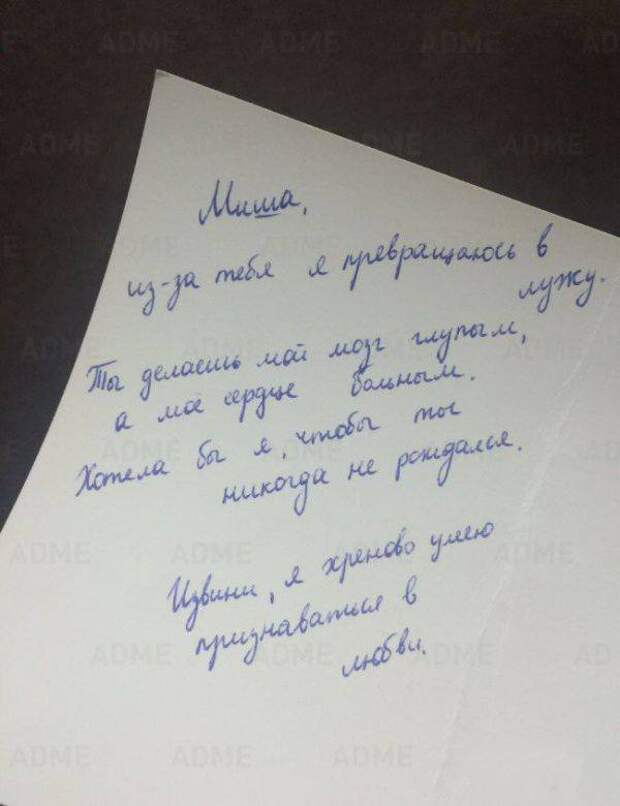 Миша,
из-за тебя я превращаюсь в
лужу.
Ты делаешь мой мозг глупым,
а моё сердце больным.
Хотела бы я, чтобы ты
никогда не рождался.
Извини, я хреново умею
признаваться в
любви.